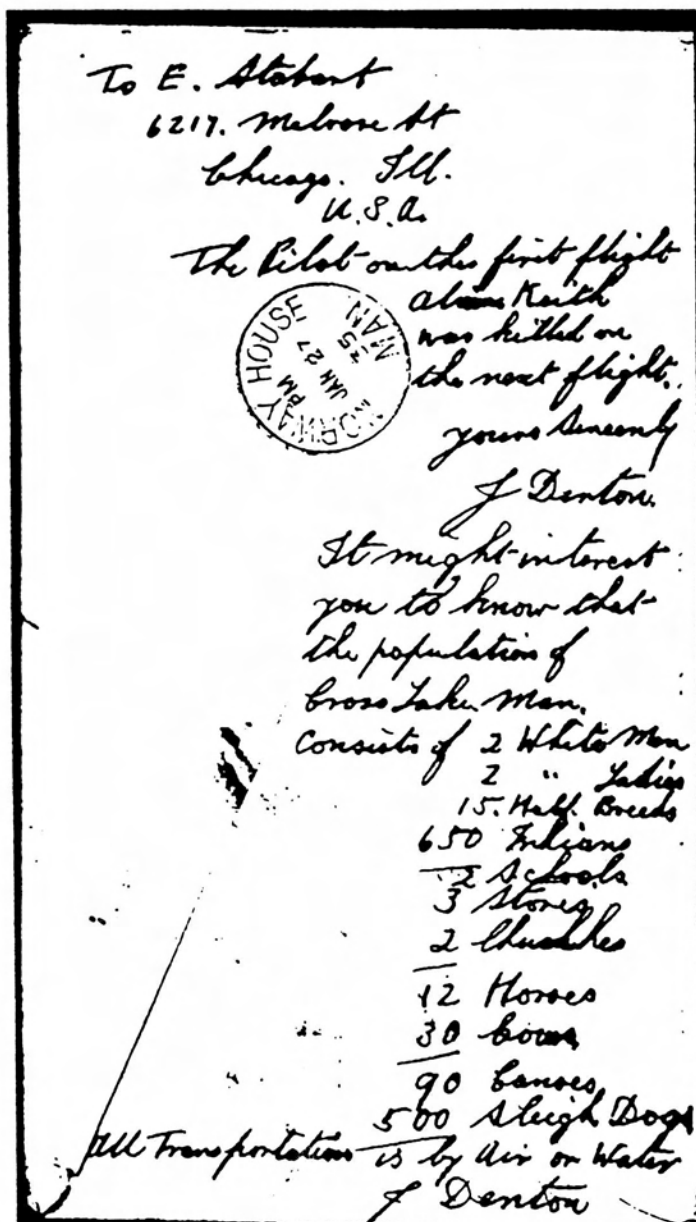 To E. Stabart
6217. Melrose St
Chicago. Ill.
U.S.A.
The Pilot on this first flight
Keith
was killed on
the next flight.
yours Sincerely
J Denton.
NORWAY HOUSE
MAN
PM
JAN 27
35
It might interest
you to know that
the population of
Cross Lake. Man.
Consists of 2 White Men
2 " Ladies
15. Half. Breeds
650 Indians
2 Schools
3 Stores
2 Churches
12 Horses
30 Cows
90 Canoes
500 Sleigh Dogs
All Transportation is by Air or Water
J Denton